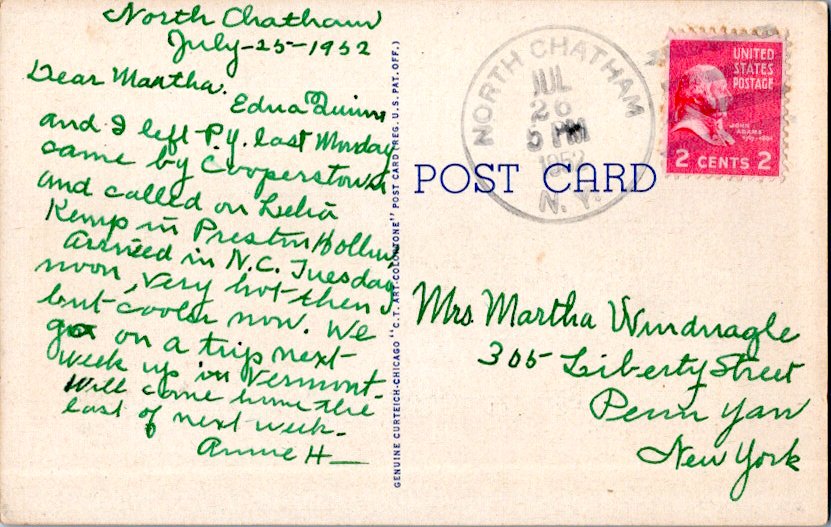 North Chatham
July-25-1952
Dear Martha.
Edna Quinn
and I left P.Y. last Monday
came by Cooperstown
and called on Lelia
Kemp in Preston Hollow
Arrived in N.C. Tuesday
noon, very hot then
but cooler now. We
go on a trip next
week up in Vermont.
Will come home the
last of next week.
Annie H—
GENUINE CURTEICH-CHICAGO "C.T. ART-COLORTONE" POST CARD (REG. U.S. PAT. OFF.)
NORTH CHATHAM
JUL
26
5 PM
1952
N.Y.
UNITED
STATES
POSTAGE
JOHN
ADAMS
2 CENTS 2
POST CARD
Mrs. Martha Windnagle
305 Liberty Street
Penn Yan
New York